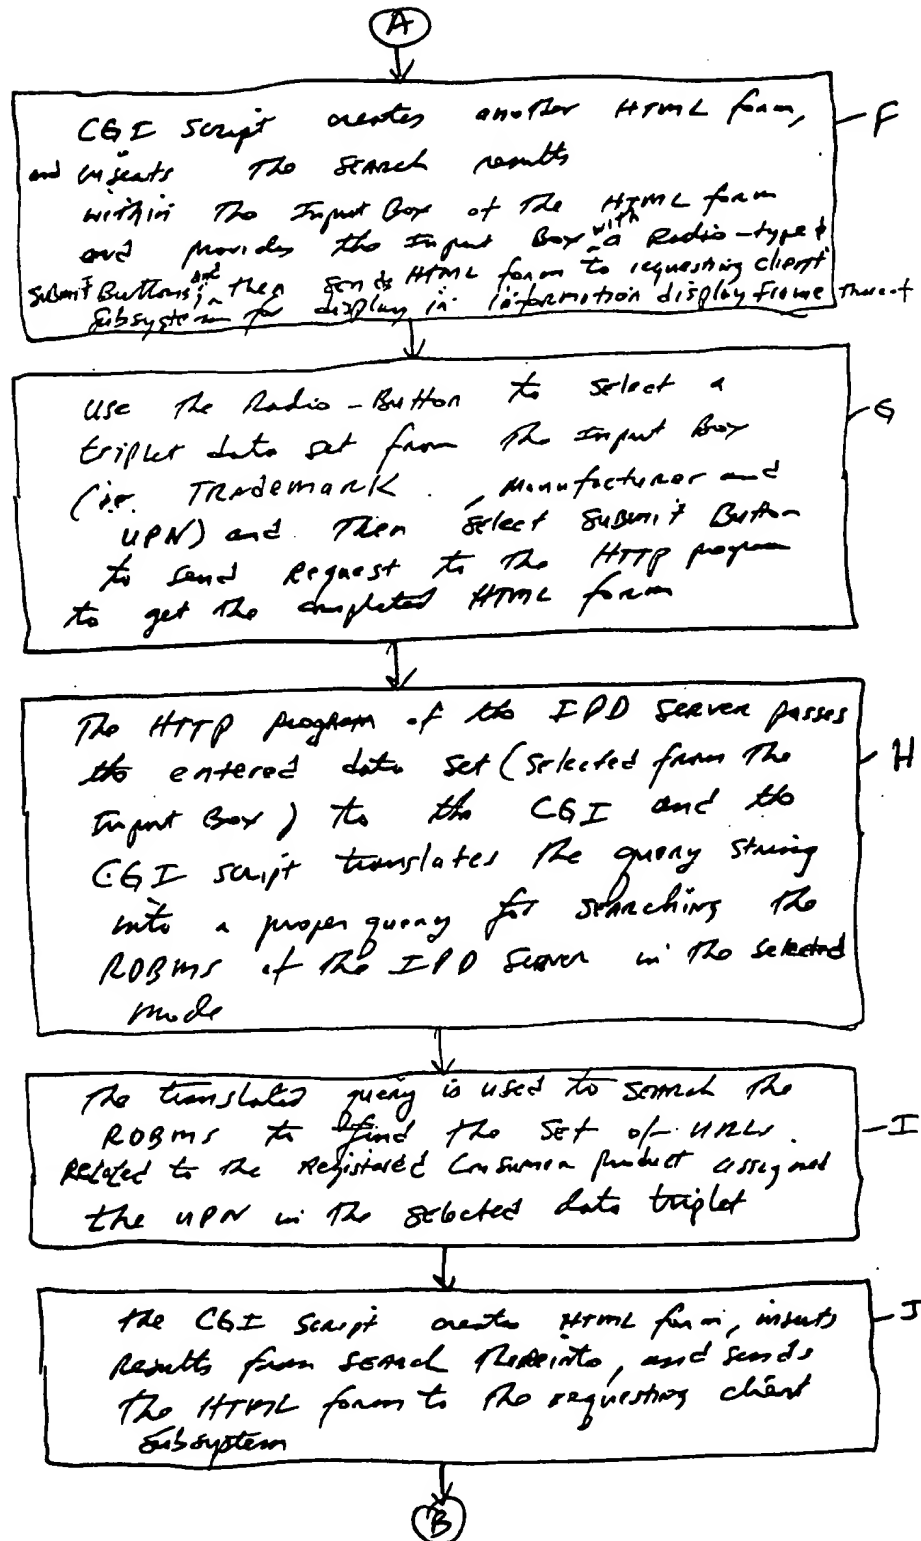 A
CGI Script creates another HTML form, F
and inserts The SEARCH results
within The Input Box of The HTML form
and provides the Input Box with a Radio-type &
Submit Buttons, and then sends HTML form to requesting client
subsystem for display in information display frame thereof
use The Radio-Button to select a G
triplet data set from The Input Box
(ie. TRademark, Manufacturer and
UPN) and Then select Submit Button
to send Request to The HTTP program
to get the completed HTML form
The HTTP program of the IPD Server passes
the entered data set (selected from The H
Input Box) to the CGI and the
CGI script translates The query string
into a proper query for SEARching The
RDBMS of The IPD Server in The selected
mode
The translated query is used to SEARCH The
RDBMS to find the set of URLs I
Related to The Registered Consumer product assigned
the UPN in The selected data triplet
the CGI Script creates HTML form, inserts J
Results from SEARCH Thereinto, and sends
The HTML form to The requesting client
Subsystem
B